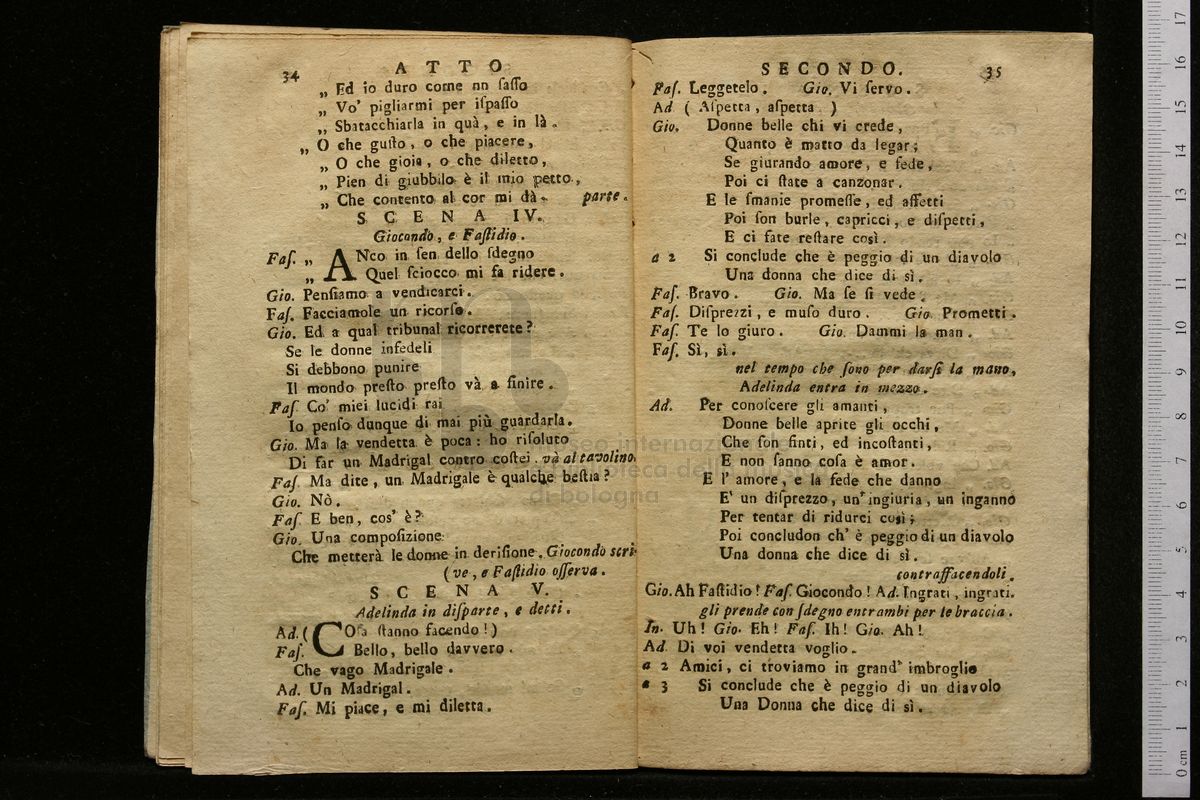 34 ATTO
„ Ed io duro come nn ſaſſo
„ Vo' pigliarmi per iſpaſſo
„ Sbatacchiarla in quà, e in là.
„ O che guſto, o che piacere,
„ O che gioia, o che diletto,
„ Pien di giubbilo è il mio petto,
„ Che contento al cor mi dà. parte.
SCENA IV.
Giocondo, e Faſtidio.
Faſ. „ ANco in ſen dello ſdegno
„ Quel ſciocco mi fa ridere.
Gio. Penſiamo a vendicarci.
Faſ. Facciamole un ricorſo.
Gio. Ed a qual tribunal ricorrerete?
Se le donne infedeli
Si debbono punire
Il mondo preſto preſto và a finire.
Faſ Co' miei lucidi rai
Io penſo dunque di mai più guardarla.
Gio. Ma la vendetta è poca: ho riſoluto
Di far un Madrigal contro coſtei. và al tavolino.
Faſ. Ma dite, un Madrigale è qualche beſtia?
Gio. Nò.
Faſ E ben, cos' è?
Gio. Una compoſizione
Che metterà le donne in deriſione. Giocondo scri-
(ve, e Faſtidio oſſerva.
SCENA V.
Adelinda in diſparte, e detti.
Ad. ( COſa ſtanno facendo!)
Faſ. Bello, bello davvero.
Che vago Madrigale.
Ad. Un Madrigal.
Faſ. Mi piace, e mi diletta.
SECONDO. 35
Faſ. Leggetelo. Gio. Vi ſervo.
Ad ( Aſpetta, aſpetta )
Gio. Donne belle chi vi crede,
Quanto è matto da legar;
Se giurando amore, e fede,
Poi ci ſtate a canzonar.
E le ſmanie promeſſe, ed affetti
Poi ſon burle, capricci, e diſpetti,
E ci fate reſtare così.
a 2 Si conclude che è peggio di un diavolo
Una donna che dice di sì.
Faſ. Bravo. Gio. Ma ſe ſi vede.
Faſ. Diſprezzi, e muſo duro. Gio. Prometti.
Faſ. Te lo giuro. Gio. Dammi la man.
Faſ. Sì, sì.
nel tempo che ſono per darſi la mano,
Adelinda entra in mezzo.
Ad. Per conoſcere gli amanti,
Donne belle aprite gli occhi,
Che ſon finti, ed incoſtanti,
E non ſanno coſa è amor.
E l' amore, e la fede che danno
E' un diſprezzo, un' ingiuria, un inganno
Per tentar di ridurci così;
Poi concludon ch' è peggio di un diavolo
Una donna che dice di sì.
contraffacendoli.
Gio. Ah Faſtidio! Faſ. Giocondo! Ad. Ingrati, ingrati.
gli prende con ſdegno entrambi per le braccia.
In. Uh! Gio. Eh! Faſ. Ih! Gio. Ah!
Ad. Di voi vendetta voglio.
a 2 Amici, ci troviamo in grand' imbroglio
a 3 Si conclude che è peggio di un diavolo
Una Donna che dice di sì.
museo internazionale
e biblioteca della musica
di bologna
0 cm 1 2 3 4 5 6 7 8 9 10 11 12 13 14 15 16 17